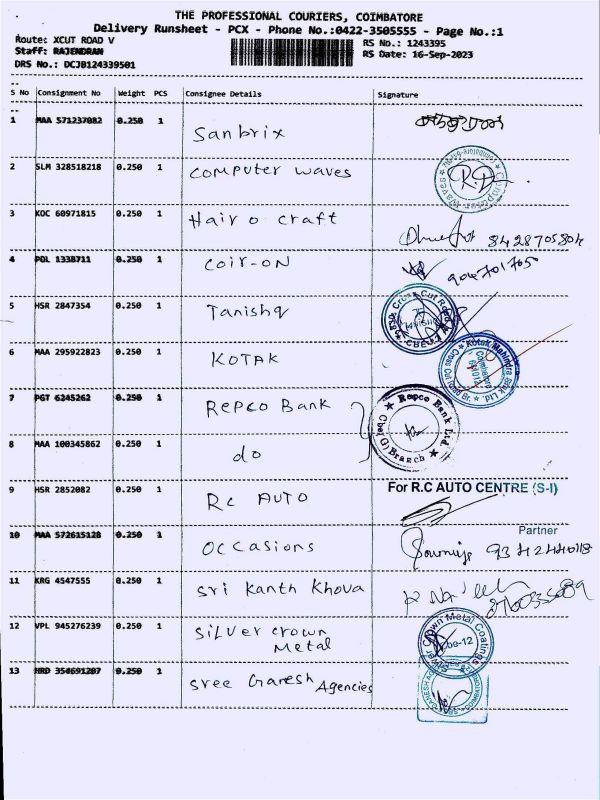 THE PROFESSIONAL COURIERS, COIMBATORE
Delivery Runsheet - PCX - Phone No.:0422-3505555 - Page No.:1
Route: XCUT ROAD V
RS No.: 1243395
Staff: RAJENDRAN
RS Date: 16-Sep-2023
DRS No.: DCJB124339501
S No Consignment No Weight PCS Consignee Details Signature
1 MAA 571237082 0.250 1 Sanbrix
2 SLM 328518218 0.250 1 Computer waves
3 KOC 60971815 0.250 1 Hair o craft
8428705804
4 PDL 1338711 0.250 1 Coir-ON
904701705
5 HSR 2847354 0.250 1 Tanishq
6 MAA 295922823 0.250 1 KOTAK
Kotak Mahindra Bank Ltd.
Coimbatore
7 PGT 6245262 0.250 1 Repco Bank
Repco Bank Ltd.
Cbe(G) Branch
8 MAA 100345862 0.250 1 do
9 HSR 2852082 0.250 1 RC AUTO
For R.C AUTO CENTRE (S-I)
Partner
10 MAA 572615128 0.250 1 Occasions
11 KRG 4547555 0.250 1 Sri Kanth Khova
12 VPL 945276239 0.250 1 Silver crown
Metal
Silver Crown Metal Coatings
Cbe-12
13 HRD 354691207 0.250 1 Sree Ganesh Agencies